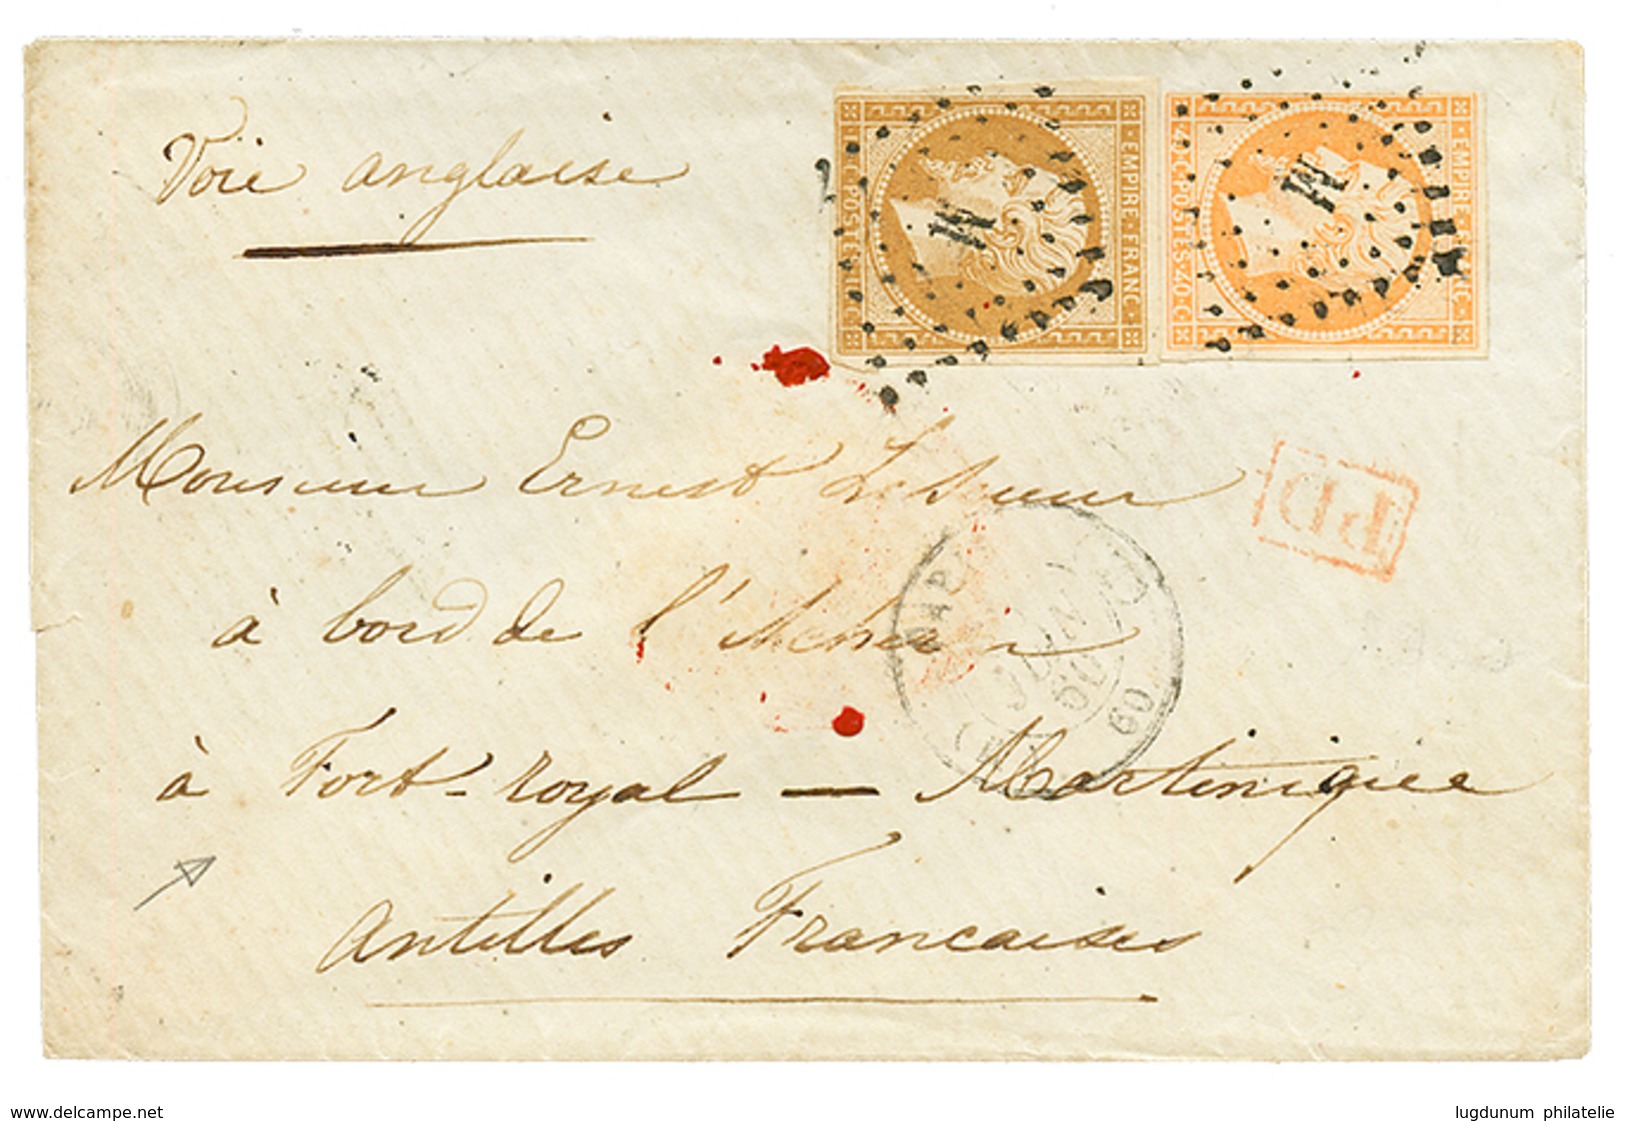 Voie anglaise
EMPIRE FRANC
POSTES
M
EMPIRE FRANC
40 C POSTES 40 C
M
PD
Monsieur Ernest
JUIN
60
60
à bord de
à Fort-royal — Martinique
Antilles Francaises
www.delcampe.net
lugdunum philatelie